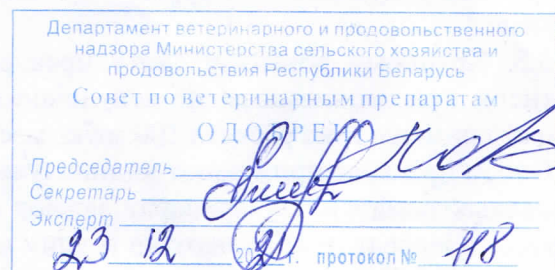 Департамент ветеринарного и продовольственного
надзора Министерства сельского хозяйства и
продовольствия Республики Беларусь
Совет по ветеринарным препаратам
ОДОБРЕНО
Председатель
Секретарь
Эксперт
«23 12 2021 г. протокол № 118